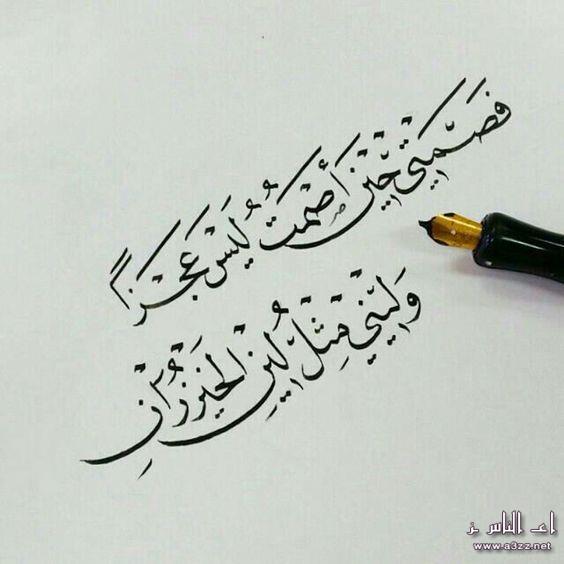 فَصَمْتِي حِيْنَ أَصْمُتُ لَيْسَ عَجْزاً
وَلِيْنِي مِثْلَ لِيْنِ الخَيْزُرَانِ
اعـ الناس ـز
www.a3zz.net